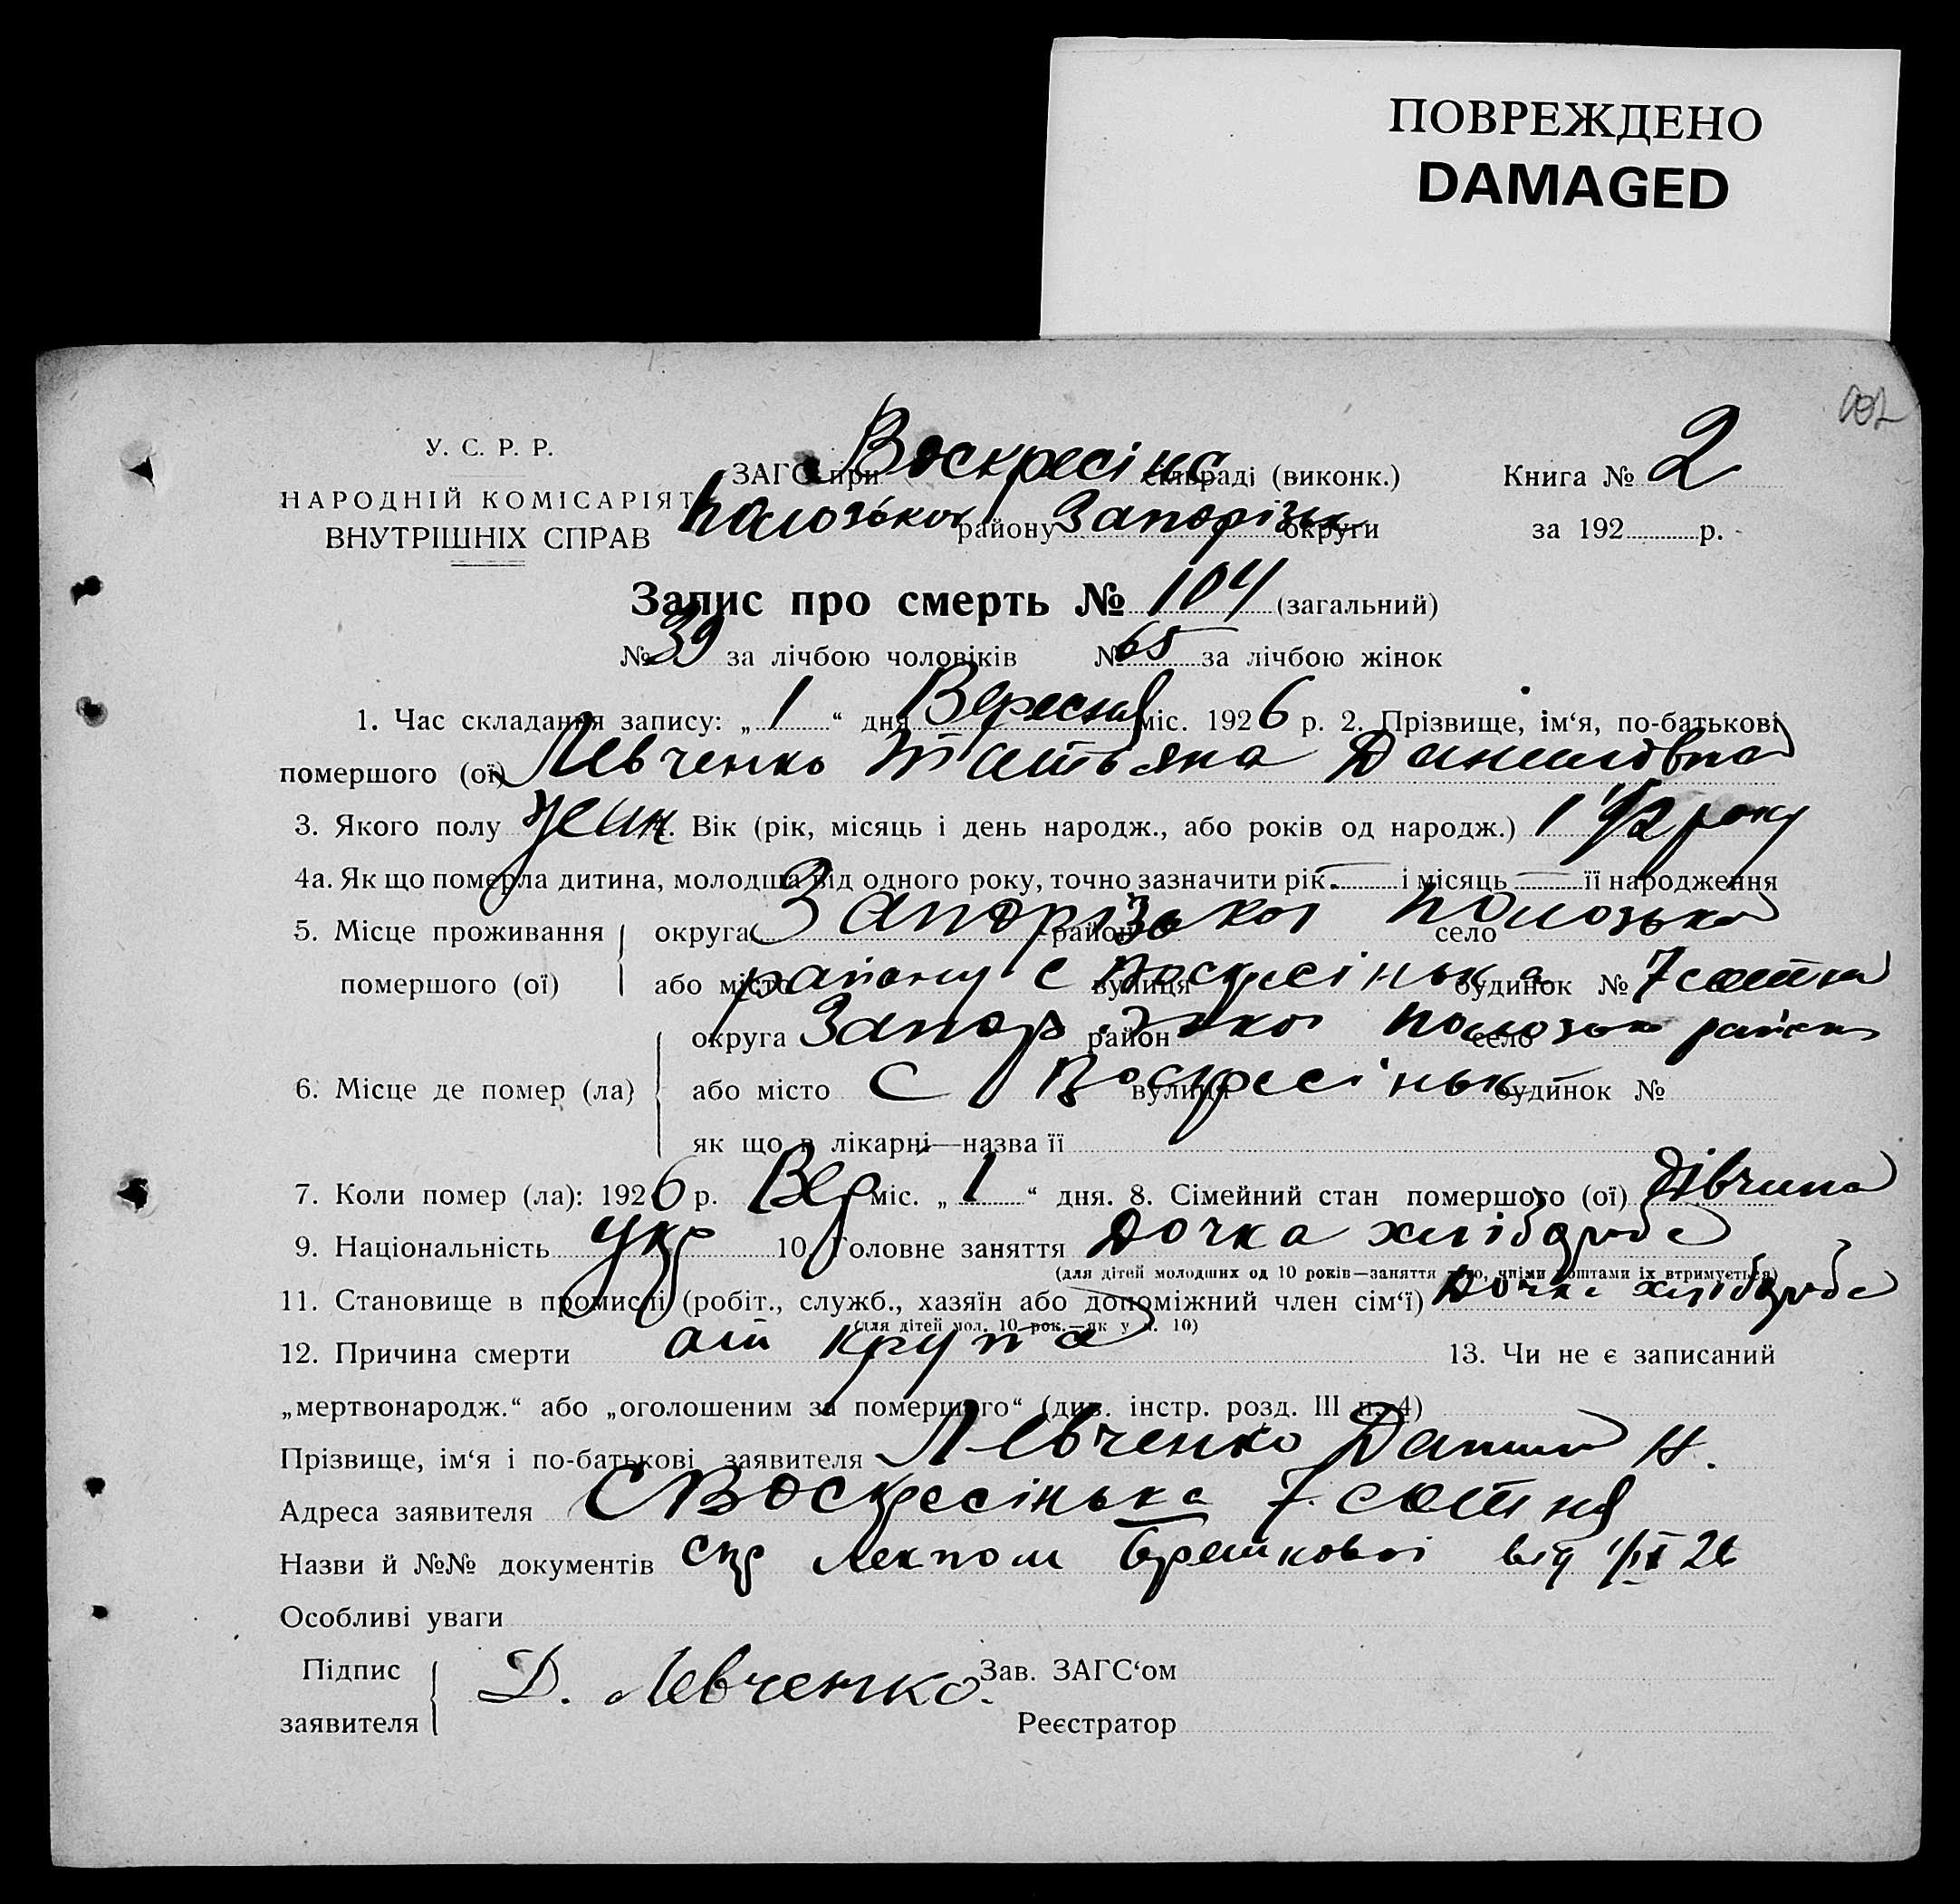 ПОВРЕЖДЕНО
DAMAGED
У. С. Р. Р.
НАРОДНІЙ КОМІСАРІЯТ
ВНУТРІШНІХ СПРАВ
ЗАГС при Воскресінс сільраді (виконк.)
Пологської району Запорізьк округи
Книга № 2
за 192 р.
Запис про смерть № 104 (загальний)
№ 39 за лічбою чоловіків № 65 за лічбою жінок
1. Час складання запису: „ 1 “ дня Вересня міс. 1926 р. 2. Прізвище, ім‘я, по-батькові
помершого (ої) Левченко Татьяна Даниловна
3. Якого полу жин 4. Вік (рік, місяць і день народж., або років од народж.) 1 1/2 року
4а. Як що померла дитина, молодша від одного року, точно зазначити рік — і місяць — її народження
5. Місце проживання округа Запорізької район село Полозько
помершого (ої) або місто району с Воскресінька вулиця будинок № 7 сотня
округа Запорізької район село Полозько району
6. Місце де помер (ла) або місто С Воскресіньк вулиця будинок №
як що в лікарні—назва її
7. Коли помер (ла): 1926 р. Вер міс. „ 1 “ дня. 8. Сімейний стан помершого (ої) дівчина
9. Національність укр 10. Головне заняття Дочка хлібороба
(для дітей молодших од 10 років—заняття того, чиїми коштами їх втримується)
11. Становище в промислі (робіт., служб., хазяїн або допоміжний член сім‘ї) Дочка хлібороба
(для дітей мол. 10 рок.—як у п. 10)
12. Причина смерти от крупа 13. Чи не є записаний
„мертвонародж.“ або „оголошеним за помершого“ (див. інстр. розд. III п. 4)
Прізвище, ім‘я і по-батькові заявителя Левченко Данило Н.
Адреса заявителя С Воскресінька 7 сотня
Назви й №№ документів спр лекпом від 1/IX 26
Особливі уваги
Підпис
заявителя
Д. Левченко.
Зав. ЗАГС‘ом
Реєстратор